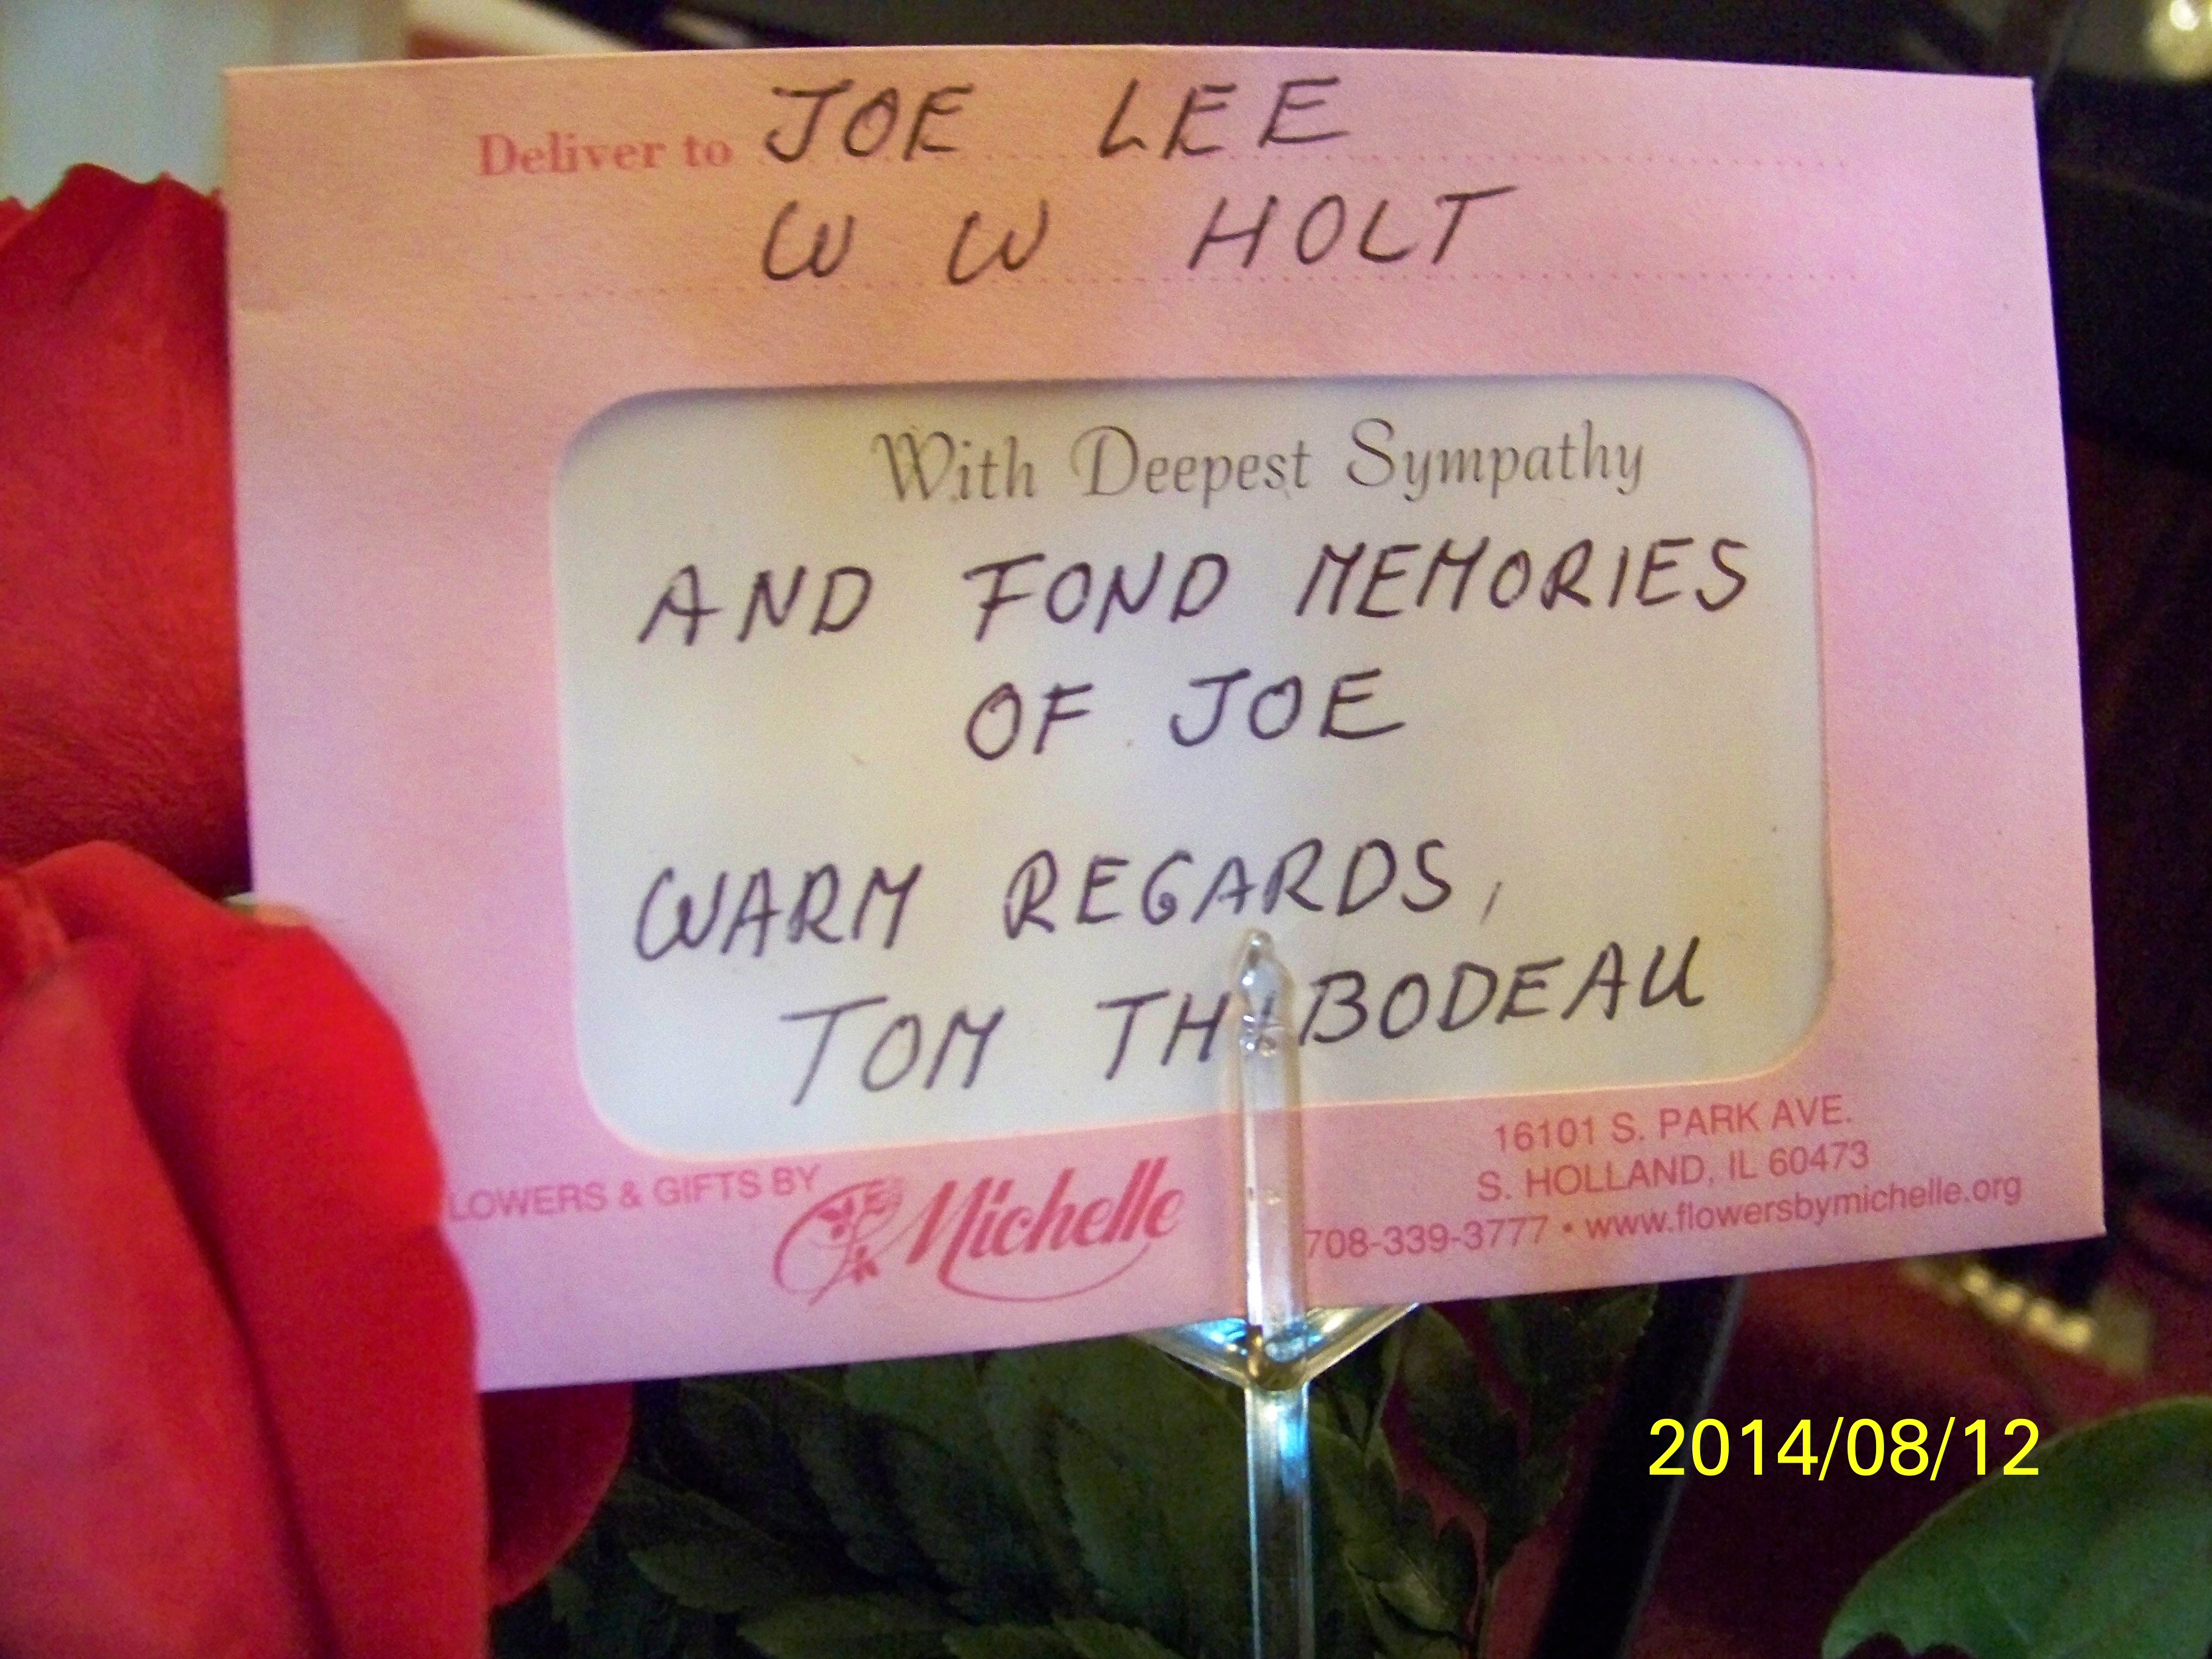 Deliver to JOE LEE
W W HOLT
With Deepest Sympathy
AND FOND MEMORIES
OF JOE
WARM REGARDS,
TOM THIBODEAU
LOWERS & GIFTS BY Michelle
16101 S. PARK AVE.
S. HOLLAND, IL 60473
708-339-3777 • www.flowersbymichelle.org
2014/08/12